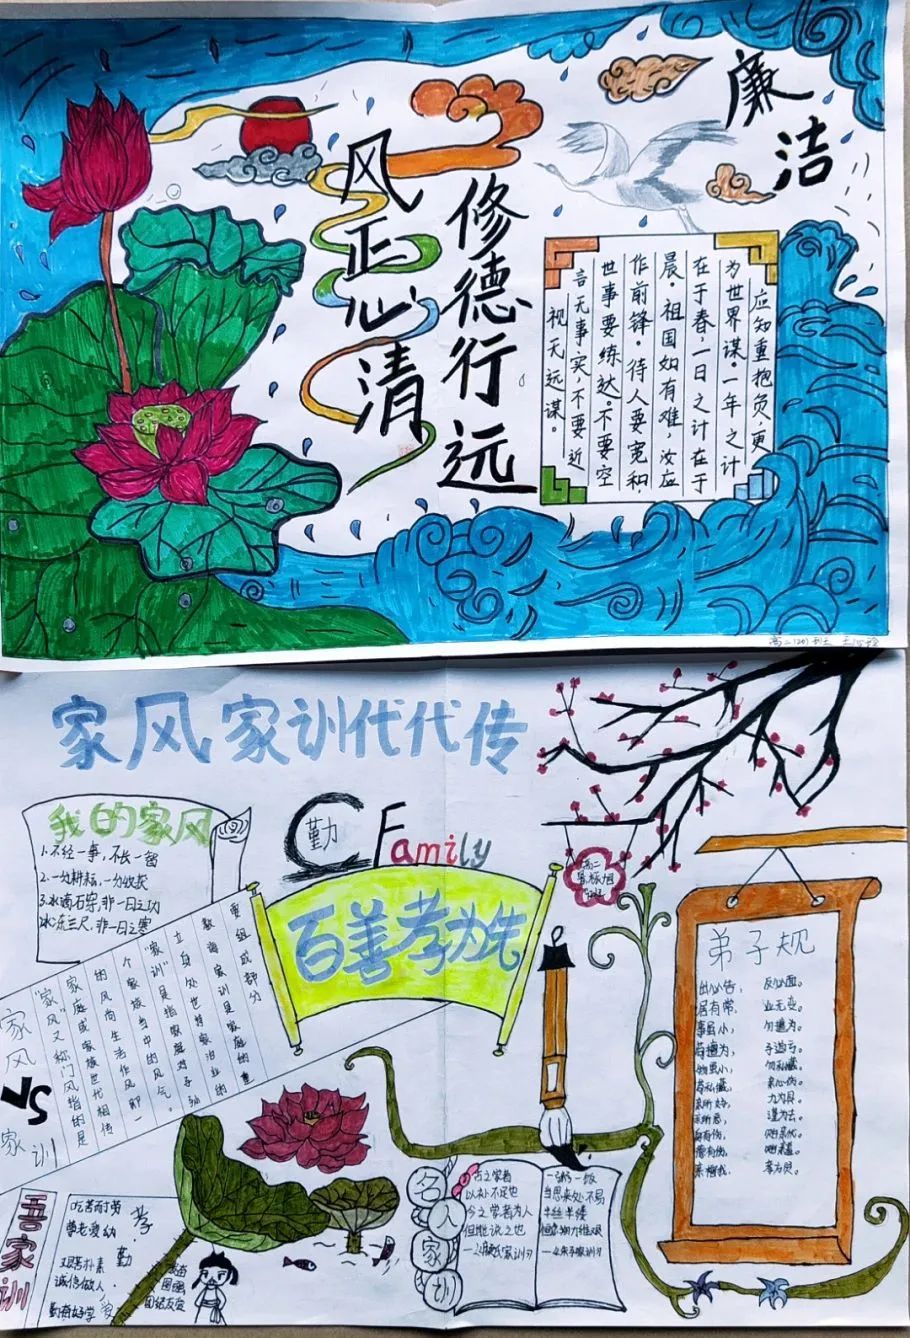 廉洁
修德行远
风正心清
应知重抱负，更
为世界谋。一年之计
在于春，一日之计在于
晨。祖国如有难，汝应
作前锋。待人要宽和，
世事要练达。不要空
言无事实，不要近
视无远谋。
家风家训代代传
我的家风
1.不经一事，不长一智
2.一分耕耘，一分收获
3.水滴石穿，非一日之功
冰冻三尺，非一日之寒
勤
Family
百善孝为先
高二
家风
VS
家训
"家风"又称门风指的是
家庭或家族世代相传
的风尚生活作风即一
个家族当中的风气。
"家训"是指家庭对子孙
立身处世持家治业的
教诲家训是家庭的重
要组成部分
弟子规
出必告，反必面。
居有常，业无变。
事虽小，勿擅为。
苟擅为，子道亏。
物虽小，勿私藏。
苟私藏，亲心伤。
吾家训
吃苦耐劳
尊老爱幼
孝
艰苦朴素
勤
诚信做人
勤奋好学
家
团结友爱
名人家训
古之学者
以补不足也
今之学者为人
但能说之也
一粥一饭
当思来处不易
半丝半缕
恒念物力维艰